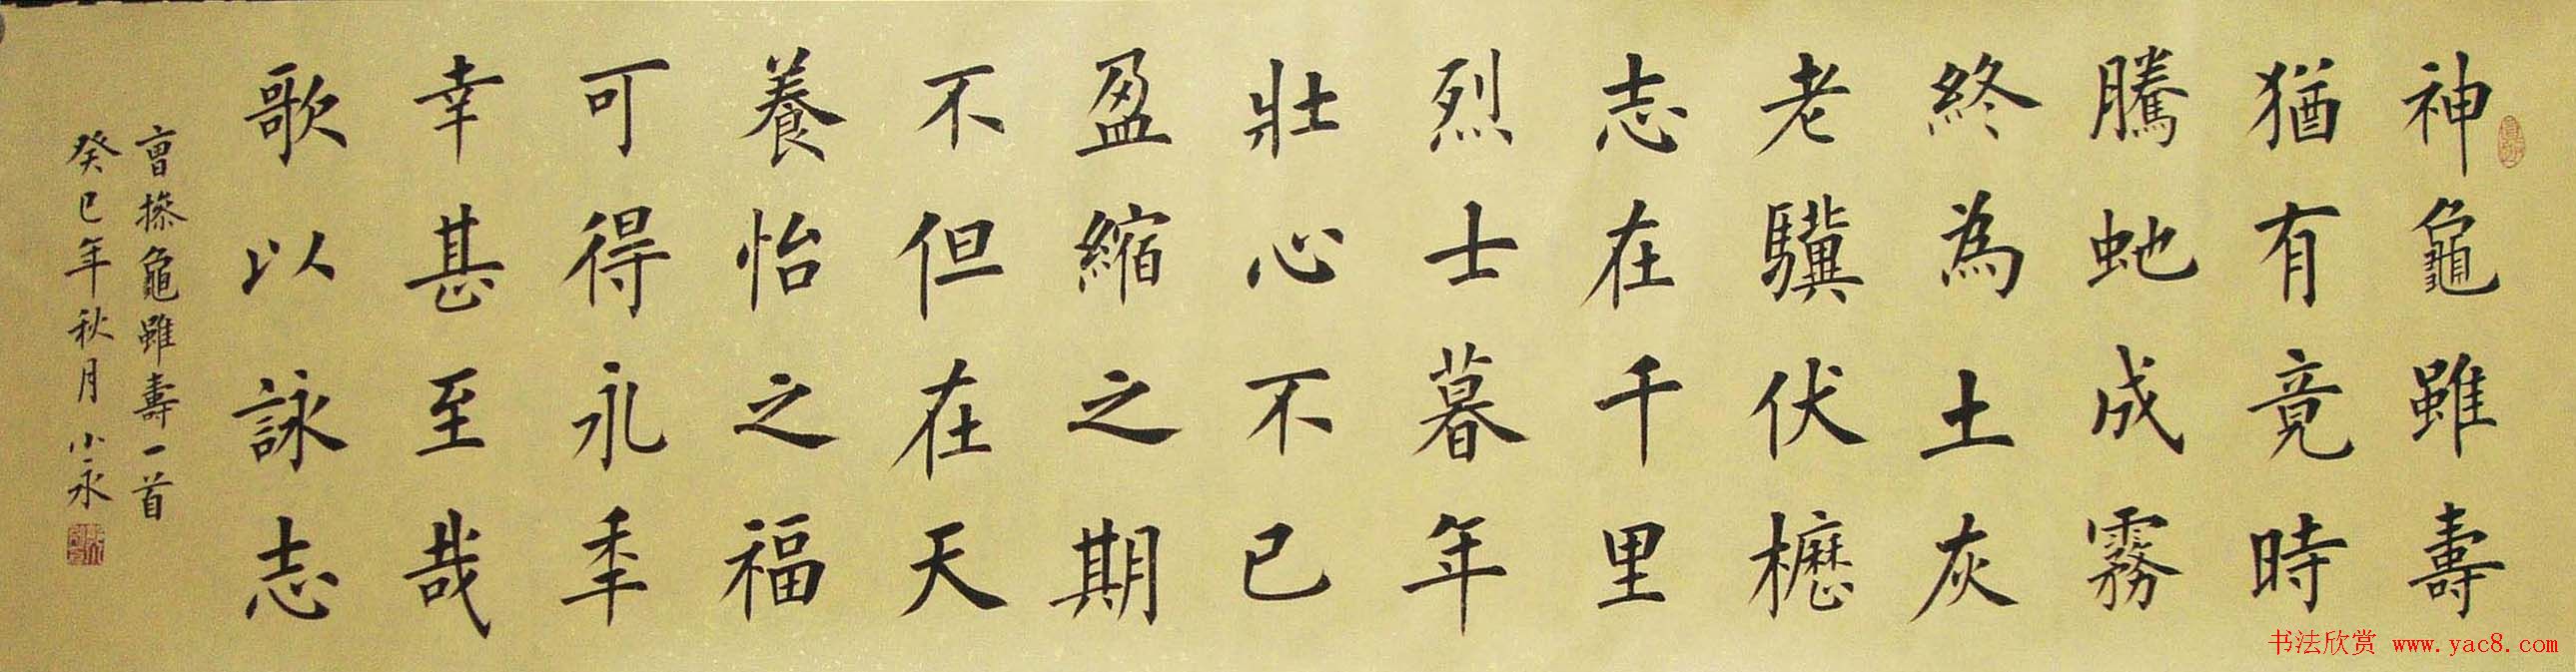 神龜雖壽
猶有竟時
騰虵成霧
終為土灰
老驥伏櫪
志在千里
烈士暮年
壯心不已
盈縮之期
不但在天
養怡之福
可得永季
幸甚至哉
歌以詠志
曹操龜雖壽一首
癸巳年秋月小永
书法欣赏 www.yac8.com